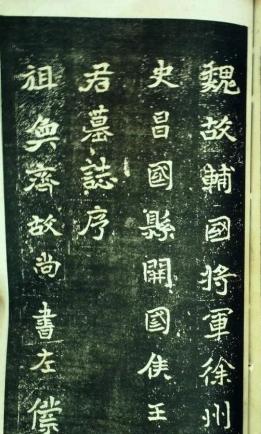 魏故輔國將軍徐州
史昌國縣開國侯王
君墓誌序
祖奐齊故尚書左僕